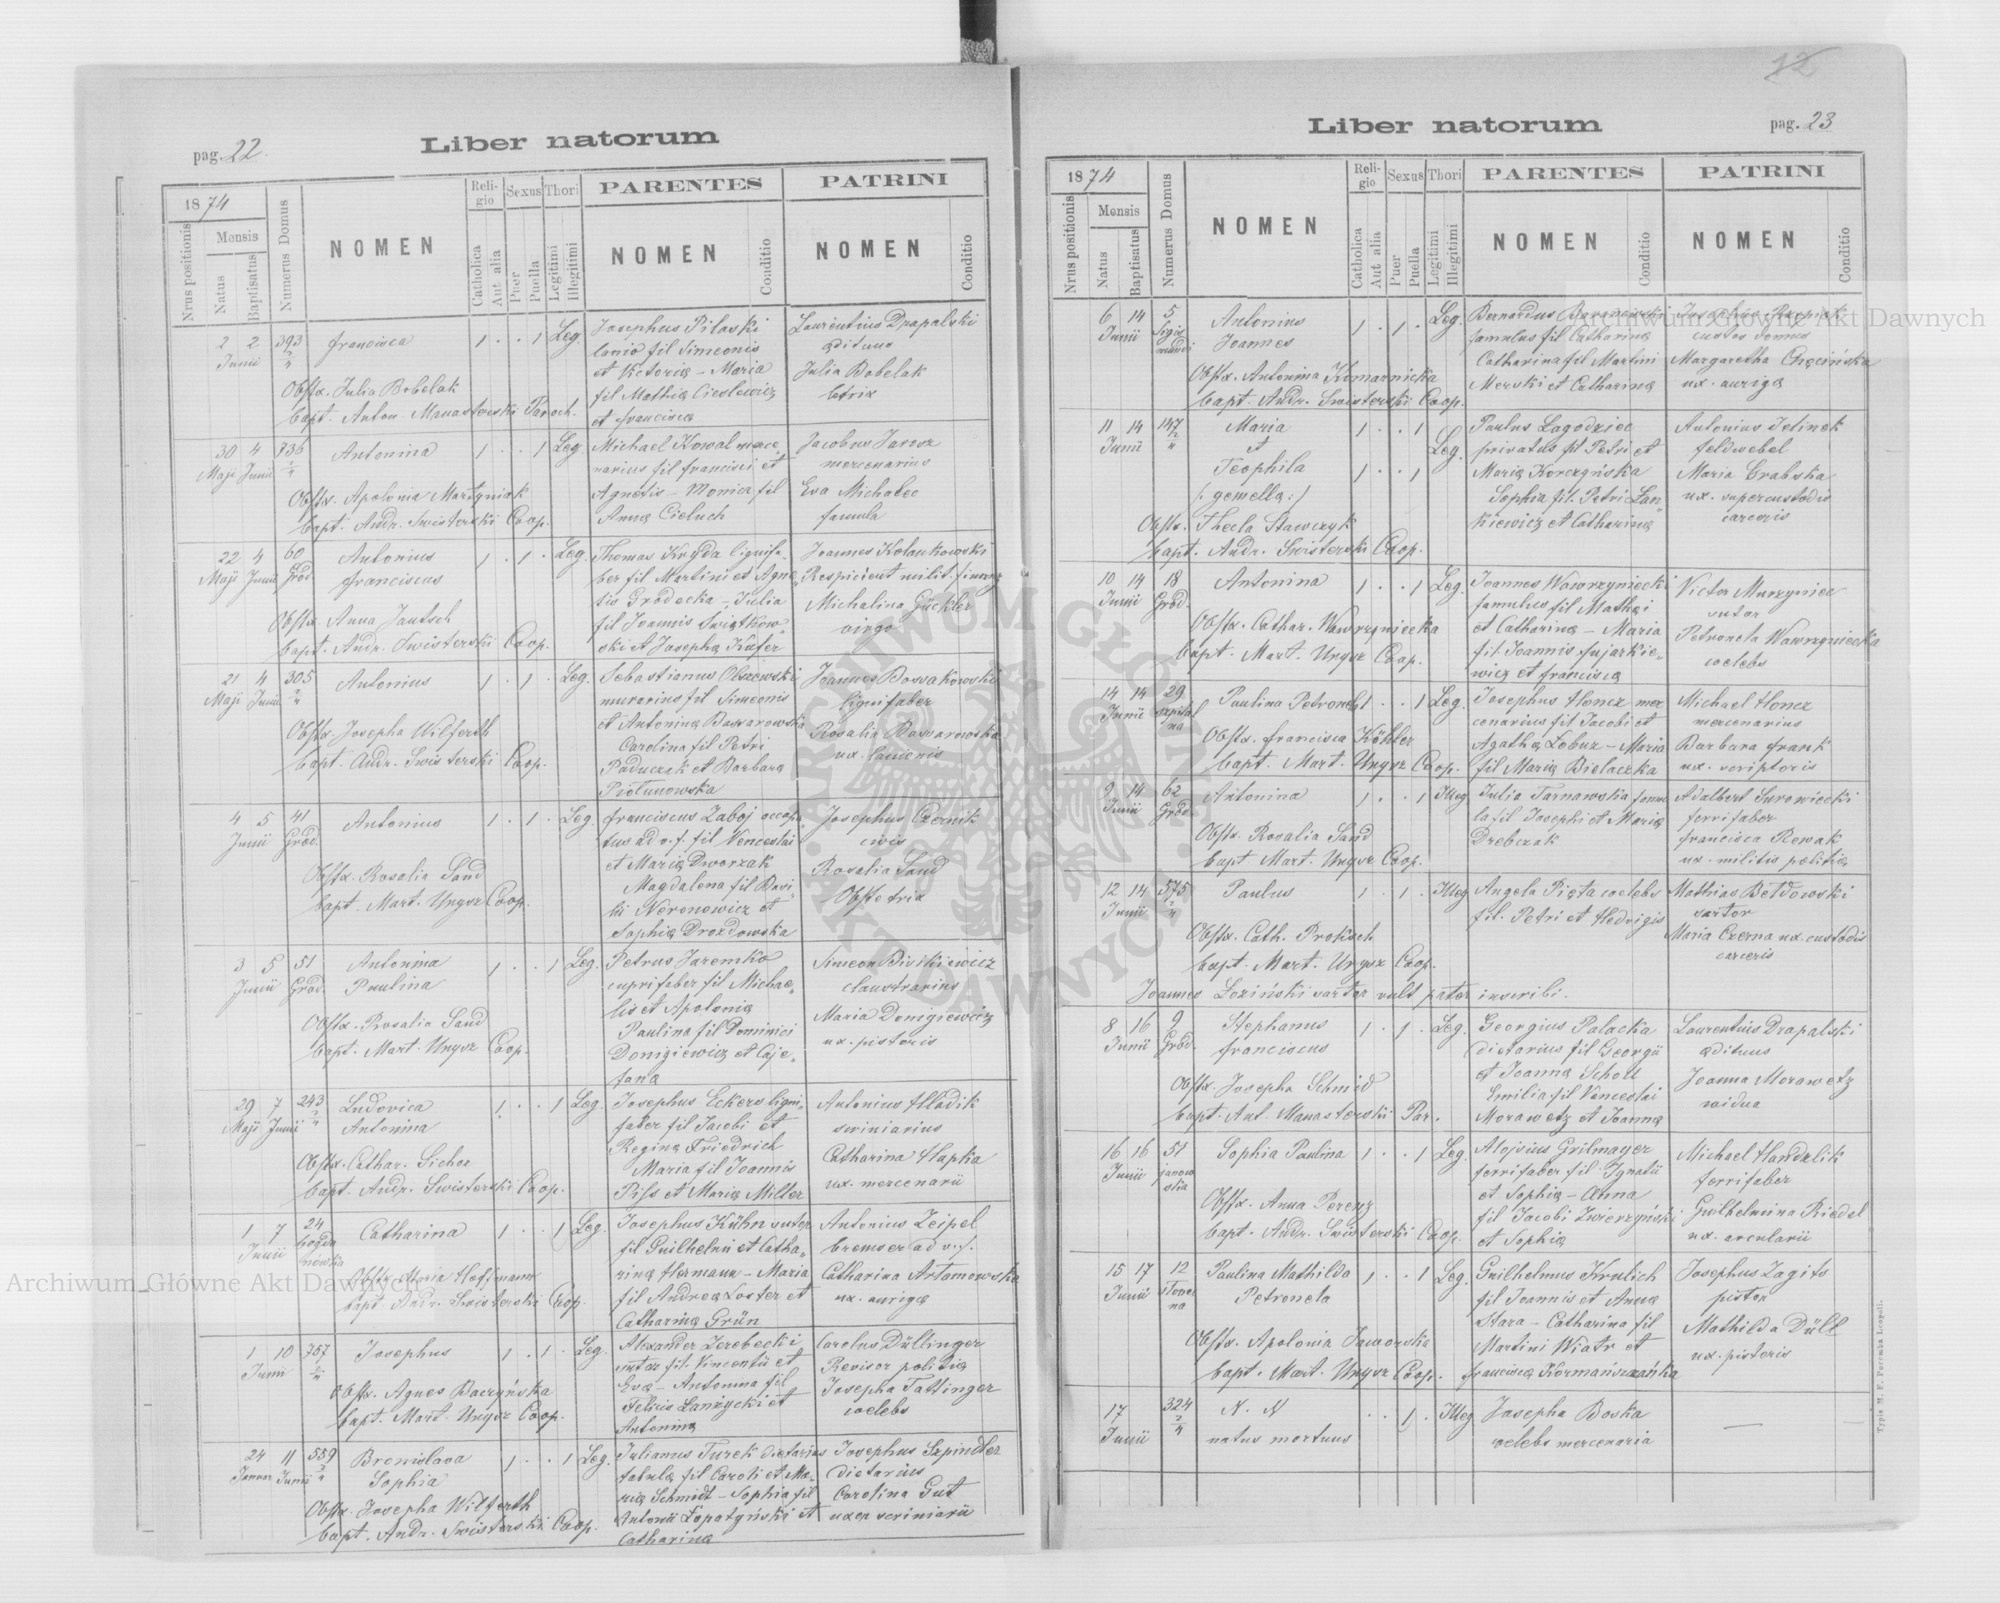 pag. 22.
Liber natorum
1874
Nrus positionis
Mensis
Natus
Baptisatus
Numerus Domus
NOMEN
Religio
Catholica
Aut alia
Sexus
Puer
Puella
Thori
Legitimi
Illegitimi
PARENTES
NOMEN
Conditio
PATRINI
NOMEN
Conditio
2 2 393 2/4
Junii
Francisca
1 . . 1 Leg.
Obstx. Julia Bobelak
bapt. Anton. Manasterski Paroch.
Josephus Pilaski
lanio fil Simeonis
et Victoriæ – Maria
fil Mathiæ Cieslewicz
et Francisca
Laurentius Drapalski
ædituus
Julia Bobelak
30 4 736 2/4
Maji Junii
Antonina
1 . . 1 Leg.
Obstx. Apolonia Martyniak
bapt. Andr. Swisterski Coop.
Michael Kowal merce-
narius fil Francisci et
Agnetis – Monica fil
Annæ Cieluch
Jacobus Jarosz
mercenarius
Eva Michalec
famula
22 4 60
Maji Junii Gród.
Antonius
Franciscus
1 . 1 . Leg.
Obstx. Anna Jautsch
bapt. Andr. Swisterski Coop.
Thomas Kryda lignifa-
ber fil Martini et Agne-
tis Grodecka – Julia
fil Joannis Swiątkow-
ski et Josepha Kufer
Joannes Kolankowski
Respicient milit. finanz
Michalina Gückler
virgo
21 4 305 2/4
Maji Junii
Antonius
1 . 1 . Leg.
Obstx. Josepha Wilferth
bapt. Andr. Swisterski Coop.
Sebastianus Olszewski
murarius fil Simeonis
et Antonina Bassarowska
Carolina fil Petri
Paduczak et Barbara
Piotunowska
Joannes Bossakowski
lignifaber
Rosalia Bassarowska
ux. lanionis
4 5 41
Junii Gród.
Antonius
1 . 1 . Leg.
Obstx. Rosalia Sand
bapt. Mart. Ungvr Coop.
Franciscus Zaboj occup.
tus ad v. f. fil Venceslai
et Maria Dworzak
Magdalena fil Basi-
lii Neronowicz et
Sophia Drozdowska
Josephus Czernik
civis
Rosalia Sand
Obstetrix
3 5 51
Junii Gród
Antonina
Paulina
1 . . 1 Leg.
Obstx. Rosalia Sand
bapt. Mart. Ungvr Coop.
Petrus Jaremko
cuprifaber fil Michae-
lis et Apolonia
Paulina fil Dominici
Donigiewicz et Caje-
tana
Simeon
claustrarius
Maria Donigiewicz
ux. pistoris
29 7 243 2/4
Maji Junii
Ludovica
Antonina
1 . . 1 Leg.
Obstx. Cathar. Sichoz
bapt. Andr. Swisterski Coop.
Josephus Eckers ligni-
faber fil Jacobi et
Regina Friedrich
Maria fil Joannis
Piss et Maria Miller
Antonius Hladik
scriniarius
Catharina Hapka
ux. mercenarii
1 7 24
Junii bogda
nówka
Catharina
1 . . 1 Leg.
Obstx. Maria Hoffmann
bapt. Andr. Swisterski Coop.
Josephus Kühn sutor
fil Guilhelmi et Catha-
rina Hermann – Maria
fil Andrea Loster et
Catharina Grün
Antonius Zeipel
bremser ad v. f.
Catharina Artamowska
ux. auriga
1 10 757 2/4
Junii
Josephus
1 . 1 . Leg.
Obstx. Agnes Baczyńska
bapt. Mart. Ungvr Coop.
Alexander Zerebecki
sutor fil. Vincentii et
Eva – Antonina fil
Felicis Lanzycki et
Antonina
Carolus Düllinger
Revisor politiæ
Josepha Tattinger
coelebs
24 11 559 2/4
Januar Junii
Bronislava
Sophia
1 . . 1 Leg.
Obstx. Josepha Wilferth
bapt. Andr. Swisterski Coop.
Julianus Turek dietarius
tabula fil Caroli et Ma-
ria Schmidt – Sophia fil
Antonii Lopatyński et
Catharina
Josephus Szpindler
dietarius
Carolina Gut
uxor scriniarii
12
Liber natorum
pag. 23
1874
Nrus positionis
Mensis
Natus
Baptisatus
Numerus Domus
NOMEN
Religio
Catholica
Aut alia
Sexus
Puer
Puella
Thori
Legitimi
Illegitimi
PARENTES
NOMEN
Conditio
PATRINI
NOMEN
Conditio
6 14 5
Junii Sigis
mundi
Antonius
Joannes
1 . 1 . Leg.
Obstx. Antonina Komarnicka
bapt. Andr. Swisterski Coop.
Bernardus Baranowski
famulus fil Catharina
Catharina fil Martini
Merski et Catharina
Josephus Rzepiak
custos domus
Margaretha Chęcińska
ux. auriga
11 14 147 2/4
Junii
Maria
et
Teophila
(: gemella :)
1 . . 1
Leg.
1 . . 1
Obstx. Thecla Stawczyk
bapt. Andr. Swisterski Coop.
Paulus Lagodziec
privatus fil Petri et
Maria Korczyńska
Sophia fil. Petri Lan-
kiewicz et Catharina
Antonius Jelinek
feldwebel
Maria Grabska
ux. supercustodis
carceris
10 14 18
Junii Gród.
Antonina
1 . . 1 Leg.
Obstx. Cathar. Wawrzyniecka
bapt. Mart. Ungvr Coop.
Joannes Wawrzyniecki
famulus fil Mathæi
et Catharina – Maria
fil Joannis Fujarkie-
wicz et Francisca
Victor Murzyniec
sutor
Petronela Wawrzyniecka
coelebs
14 14 29
Junii szpital
na
Paulina Petronela
1 . . 1 Leg.
Obstx. Francisca Köhler
bapt. Mart. Ungvr Coop.
Josephus Honcz mer-
cenarius fil Jacobi et
Agatha Lobuz – Maria
fil Maria Bielaczka
Michael Honcz
mercenarius
Barbara Frank
ux. scriptoris
9 14 62
Junii Gród
Antonina
1 . . 1 Illeg
Obstx. Rosalia Sand
bapt Mart. Ungvr Coop.
Julia Tarnawska famu
la fil Josephi et Maria
Drebczak
Adalbert Surowiecki
ferrifaber
Francisca Rowak
ux. militis politiæ
12 14 575 2/4
Junii
Paulus
1 . 1 . Illeg
Obstx. Cath. Proksch
bapt. Mart. Ungvr Coop.
Joannes Loziński sartor vult pater inscribi.
Angela Pięta coelebs
fil. Petri et Hedvigis
Mathias Betdowski
sartor
Maria Czerna ux. custodis
carceris
8 16 9
Junii Gród.
Stephanus
Franciscus
1 . 1 . Leg.
Obstx. Josepha Schmid
bapt. Ant. Manasterski Par.
Georgius Palacka
dietarius fil Georgii
et Joanna Scholl
Emilia fil Venceslai
Morawetz et Joanna
Laurentius Drapalski
ædituus
Joanna Morawetz
vidua
16 16 51
Junii janow
ska
Sophia Paulina
1 . . 1 Leg.
Obstx. Anna Perenz
bapt. Andr. Swisterski Coop.
Aloysius Grilmayer
ferrifaber fil Ignatii
et Sophia – Anna
fil Jacobi Zwierzyński
et Sophia
Michael Handzlik
ferrifaber
Guilhelmina Riedel
ux. arcularii
15 17 12
Junii
na
Paulina Mathilda
Petronela
1 . . 1 Leg.
Obstx. Apolonia Jaworska
bapt. Mart. Ungvr Coop.
Guilhelmus Krulich
fil Joannis et Anna
Stara – Catharina fil
Martini Wiatr et
Francisca Kormańszańka
Josephus Zagits
pistor
Mathilda Düll
ux. pistoris
17 324 2/4
Junii
N. N
natus mortuus
. . 1 . Illeg
Josepha Boska
coelebs mercenaria
—
Typis M. F. Poremba Leopoli.
Archiwum Główne Akt Dawnych
Archiwum Główne Akt Dawnych
ARCHIWUM GŁÓWNE AKT DAWNYCH